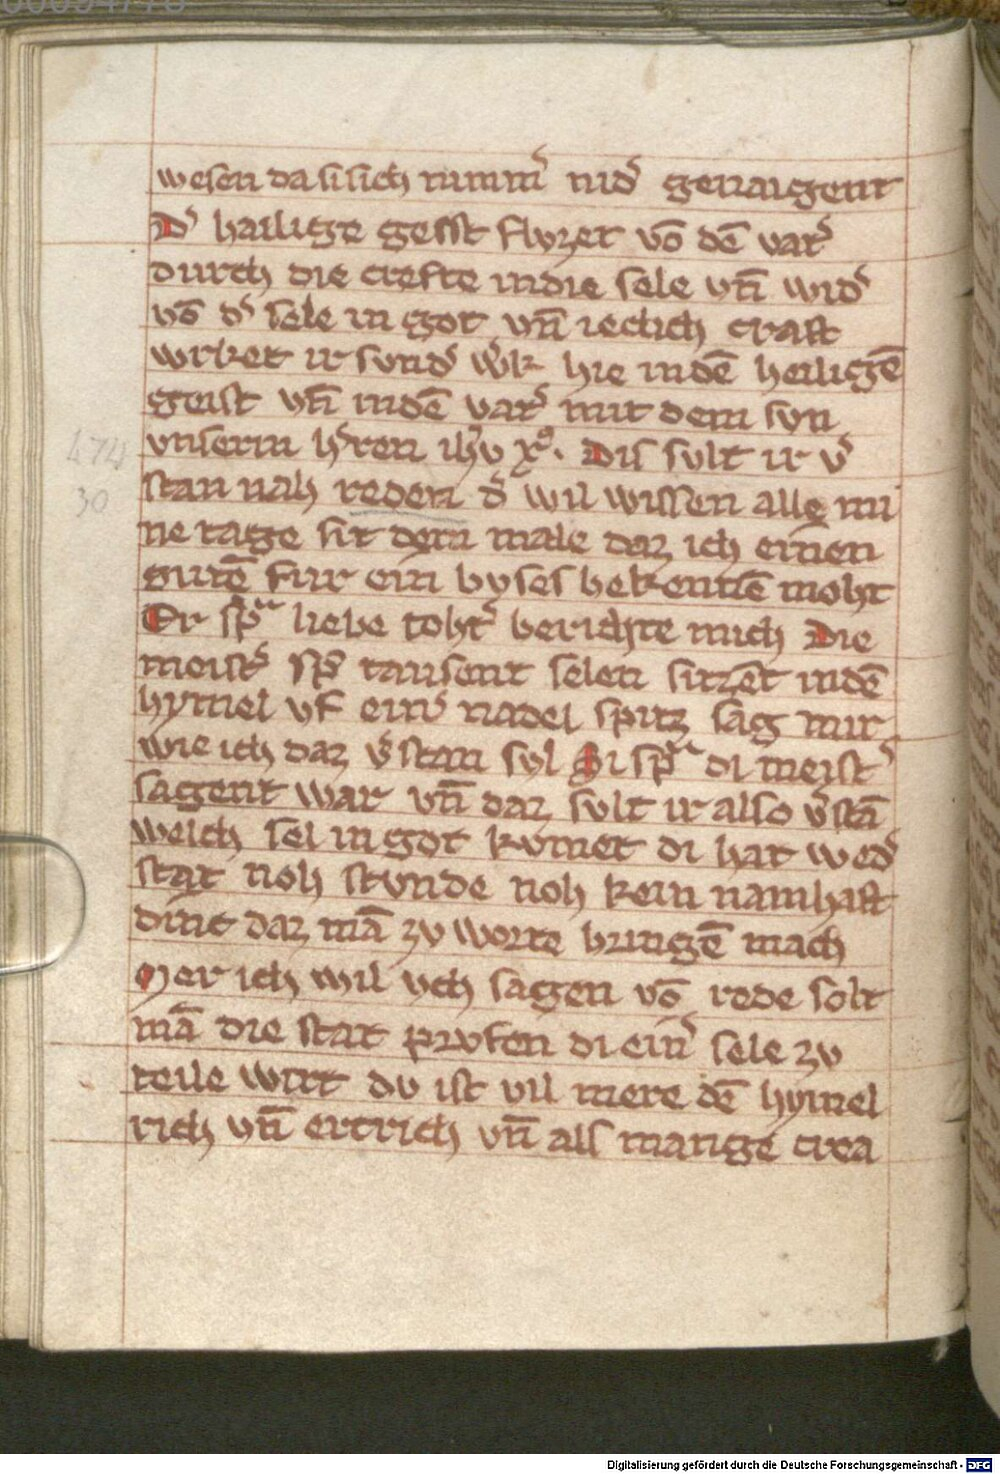 wesen da si sich nimm͛ nid͛ genaigent
D͛ hailige gesst flvzet vō dē vat͛
durch die crefte in die sele vn̄ wid͛
vō d͛ sele in got vn̄ ieclich craft
wrket ir svnd͛ w͛k hie in dē heiligē
geist vn̄ in dē vat͛ mit dem svn
vnserm h͛ren ih̄v x͛. Dis svlt ir v͛
stan nah reden d͛ wil wissen alle mi
ne tage sit dem male daz ich einen
gutē fur ein byses bekennē moht
Er sp͛ͣ liebe toht͛ berichte mich Die
meist͛ sp͛ tausent selen sitzēt in dē
hymel vf ein͛ nadel spitz sag mir
wie ich daz v͛stan syl Si sp͛ͣ di meist͛
sagent war vn̄ daz svlt ir also v͛stā
welch sel in got kvmet di hat wed͛
stat noh stvnde noh kein namhaft
dinc daz mā zv worte bringē mach
Mer ich wil vch sagen vō rede solt
mā die stat prvfen di ein͛ sele zv
teile wirt dv ist vil mere dē hymel
rich vn̄ ertrich vn̄ alls mange crea
474
30
Digitalisierung gefördert durch die Deutsche Forschungsgemeinschaft - DFG